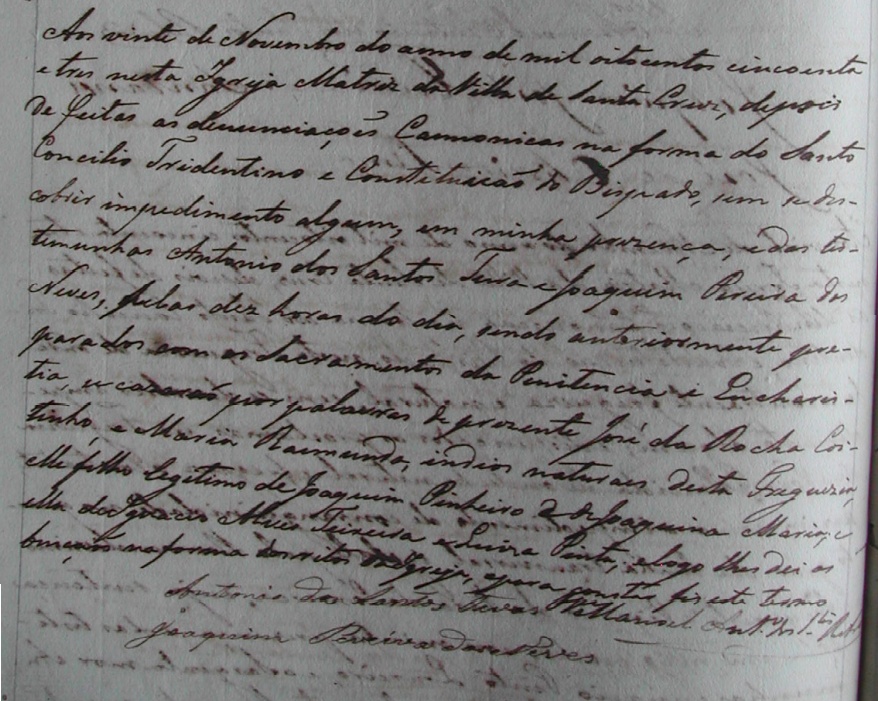 Aos vinte de Novembro do anno de mil oitocentos cincoenta
e tres nesta Igreja Matriz da Villa de Santa Cruz, depois
de feitas as denunciações Cannonicas na forma do Santo
Concilio Tridentino e Constituição do Bispado, sem se des-
cobrir impedimento algum, em minha prezença, e das tes-
temunhas Antonio dos Santos e Joaquim Pereira das
Neves, pelas dez horas do dia, sendo anteriormente pre-
parados com os Sacramentos da Penitencia e Eucharis-
tia, se cazaraõ por palavras de prezente José da Rocha Coi-
tinho, e Maria Raimunda, indios naturaes desta Freguezia,
elle filho legitimo de Joaquim Pinheiro e de Joaquina Maria, e
ella de Ignacio Alves Teixeira e Luiza Pinta, e logo lhes dei as
bençaõs na forma dos ritos da Igreja, e para constar fiz este termo
Antonio dos Santos Manoel
Joaquim Pereira das Neves